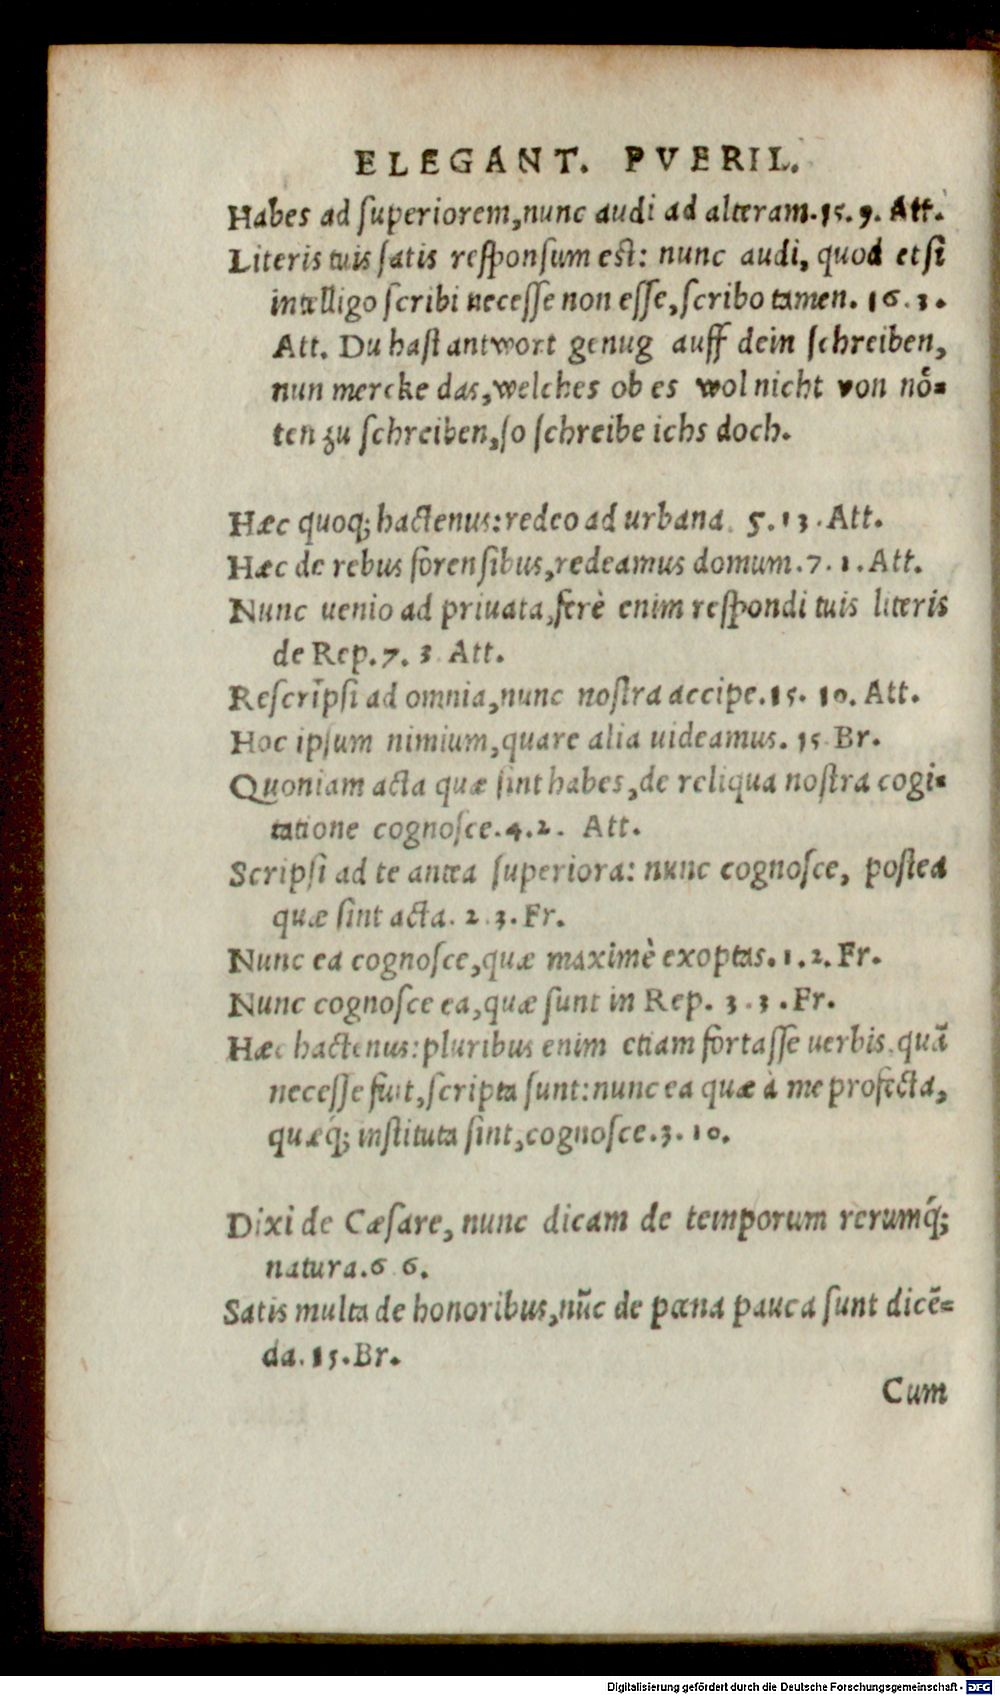 ELEGANT. PVERIL.
Habes ad ſuperiorem, nunc audi ad alteram. 15. 9. Att.
Literis tuis ſatis reſponſum eſt: nunc audi, quod etſi
intelligo ſcribi neceſſe non eſſe, ſcribo tamen. 16. 3.
Att. Du haſt antwort genug auff dein ſchreiben,
nun mercke das, welches ob es wol nicht von nöͤ=
ten zu ſchreiben, ſo ſchreibe ichs doch.
Hæc quoq; hactenus: redeo ad urbana 5. 13. Att.
Hæc de rebus forenſibus, redeamus domum. 7. 1. Att.
Nunc uenio ad priuata, ferè enim reſpondi tuis literis
de Rep. 7. 3 Att.
Reſcripſi ad omnia, nunc noſtra accipe. 15. 10. Att.
Hoc ipſum nimium, quare alia uideamus. 15 Br.
Quoniam acta quæ ſint habes, de reliqua noſtra cogi=
tatione cognoſce. 4. 2. Att.
Scripſi ad te antea ſuperiora: nunc cognoſce, poſtea
quæ ſint acta. 2 3. Fr.
Nunc ea cognoſce, quæ maximè exoptas. 1. 2. Fr.
Nunc cognoſce ea, quæ ſunt in Rep. 3. 3. Fr.
Hæc hactenus: pluribus enim etiam fortaſſe uerbis, quã
neceſſe fuit, ſcripta ſunt: nunc ea quæ à me profecta,
quæq́; inſtituta ſint, cognoſce. 3. 10.
Dixi de Cæſare, nunc dicam de temporum rerumq́;
natura. 6 6.
Satis multa de honoribus, nũc de pœna pauca ſunt dicẽ=
da. 15. Br.
Cum
Digitalisierung gefördert durch die Deutsche Forschungsgemeinschaft - DFG